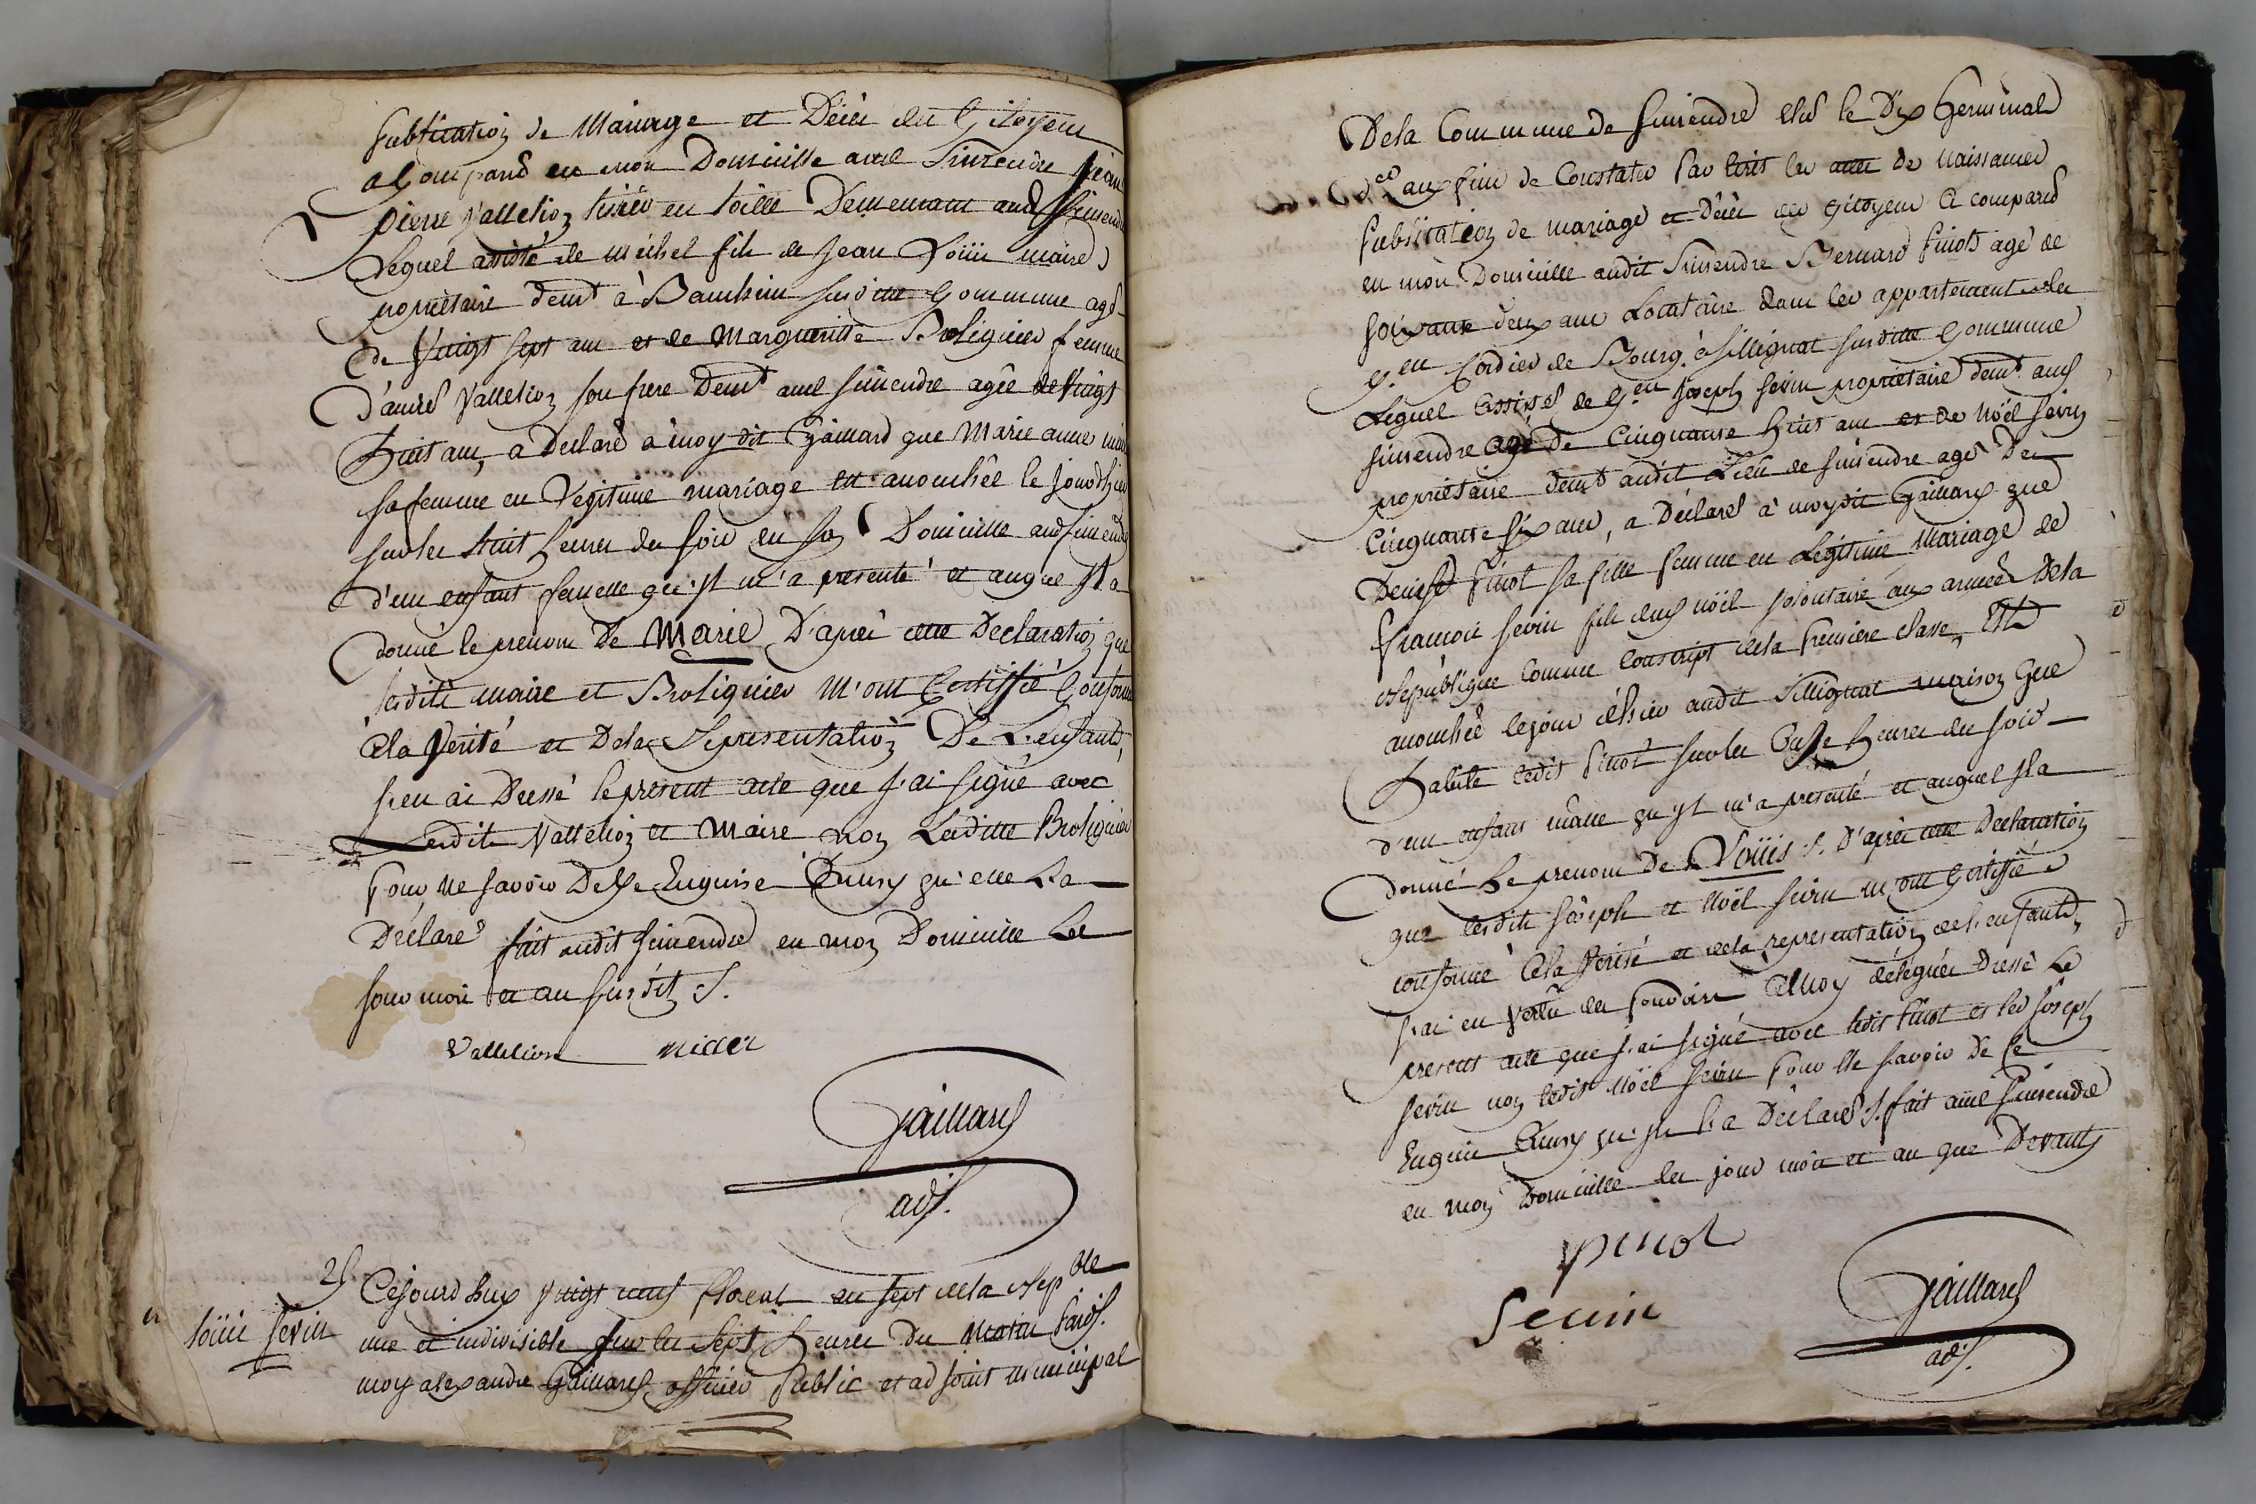 publication de Mariage et Décès des Citoyens
a Comparu en mon Domicille aud Simendre Jean
pierre Vallelion tissier en toille Demeurant aud Simendre
Lequel assisté de Michel fils de Jean Loüis maire
propriétaire demt à Bauchin susditte Commune agé
de Vingt sept ans et de Margueritte Broliquier femme
d'andré Vallelion son frere Demt aud simendre agée de Vingt
huit ans, a Déclaré à moy dit Gaillard que Marie anne
sa femme en Légitime mariage est acouchée le jourdhier
sur les huit heures du soir en son Domicille aud simendre
d'un enfant femelle qu'il m'a presenté et auquel Il a
donné le prenom De Marie D'après cette Declaration que
lesdits maire et Broliquier m'ont Certiffié Conforme
à la Vérité et De la Représentation De L'enfant,
j'en ai Dressé le present acte que j'ai signé avec
Lesdits Vallelion et Maire non Laditte Broliquier
pour ne savoir De Ce Enquise Ainsy qu'elle L'a
Déclaré fait audit Simendre en mon Domicille Les
jour mois et an susdit /.
Vallelion
Gaillard
adj.
25
Loüis sevin
Cejourd'huy vingt neuf floreal an sept de la Repble
une et indivisible sur les sept heures Du Matin Pardt
moy alexandre Gaillard officier public et adjoint municipal
De la Commune de Simendre élu le Dix Germinal
der aux fins de Constater Par Ecrit les actes de naissances
publication de mariage et Décès des citoyens a comparu
en mon Domicille audit Simendre Bernard Pinot agé de
soixante deux ans Locataire dans les appartements du
Cen Cordier de Bourg, à sillignat susditte Commune
Lequel assisté de Cen Joseph sevin propriétaire demt aud
simendre agé De Cinquante huit ans et de Noël Sevin
propriétaire demt audit Lieu de simendre agé De
Cinquante six ans, a Déclaré à moy dit Gaillard que
Denise Pinot sa fille femme en Légitime Mariage de
François sevin fils dud noël volontaire aux armées De la
République Comme Conscript de la Premiere Classe, Est
acouchée lejour d'hier audit Sillignat maison que
habite ledit Pinot sur les Onze heures du soir
d'un enfant male qu'il m'a presenté et auquel Il a
donné Le prenom De Loüis /. D'après cette Declaration
que lesdits Joseph et Noël sevin m'ont Certiffié
conforme à la Vérité et de la représentation de l'enfant,
j'ai en vertu des pouvoirs à Moy délégués Dressé Le
present acte que j'ai signé avec ledit Pinot et led Joseph
sevin non ledit Noël sevin pour Ne savoir de Ce
Enquis Ainsy qu'il l'a Déclaré /. fait aud Simendre
en mon Domicille les jour mois et an que Devant
pinot
Sevin
Gaillard
adj.